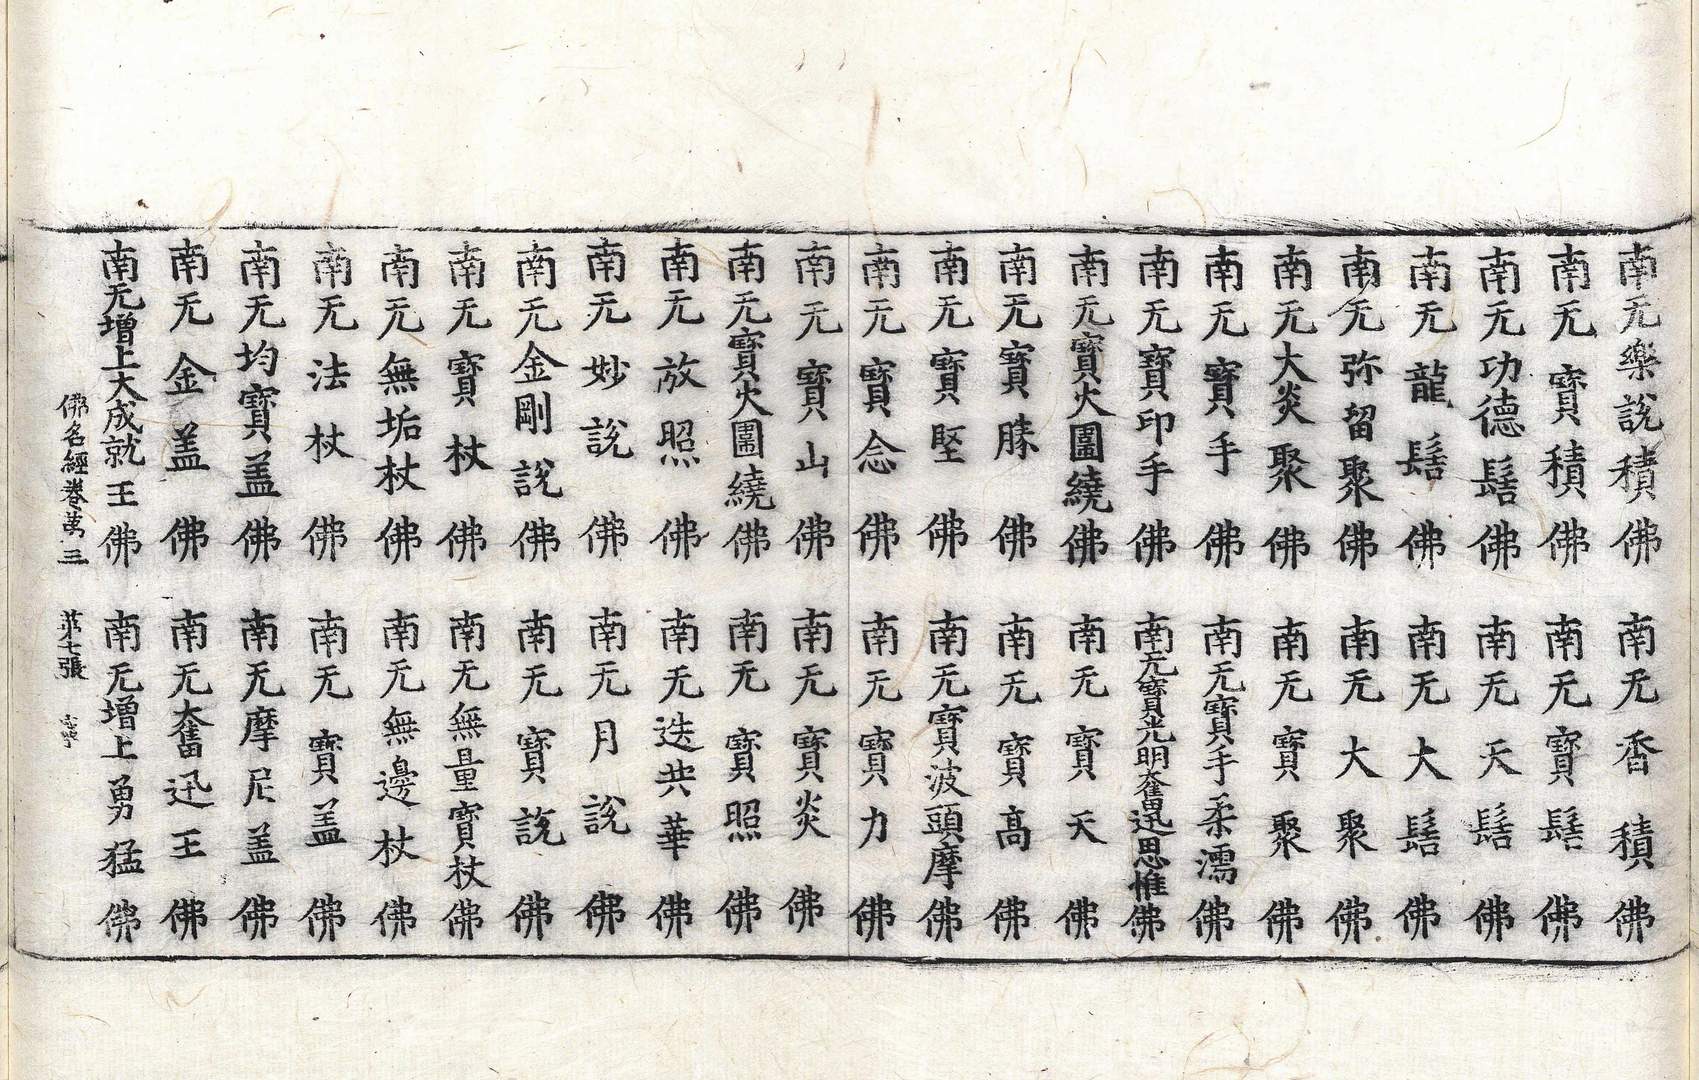 南无樂說積佛　南无香積佛
南无寶積佛　南无寶髻佛
南无功德髻佛　南无天髻佛
南无龍髻佛　南无大髻佛
南无弥留聚佛　南无大聚佛
南无大炎聚佛　南无寶聚佛
南无寶手佛　南无寶手柔濡佛
南无寶印手佛　南无寶光明奮迅思惟佛
南无寶火圍繞佛　南无寶天佛
南无寶勝佛　南无寶高佛
南无寶堅佛　南无寶波頭摩佛
南无寶念佛　南无寶力佛
南无寶山佛　南无寶炎佛
南无寶火圍繞佛　南无寶照佛
南无放照佛　南无迭共華佛
南无妙說佛　南无月說佛
南无金剛說佛　南无寶說佛
南无寶杖佛　南无無量寶杖佛
南无無垢杖佛　南无無邊杖佛
南无法杖佛　南无寶盖佛
南无均寶盖佛　南无摩尼盖佛
南无金盖佛　南无大奮迅王佛
南无增上大成就王佛　南无增上勇猛佛
佛名經卷第三　第七張